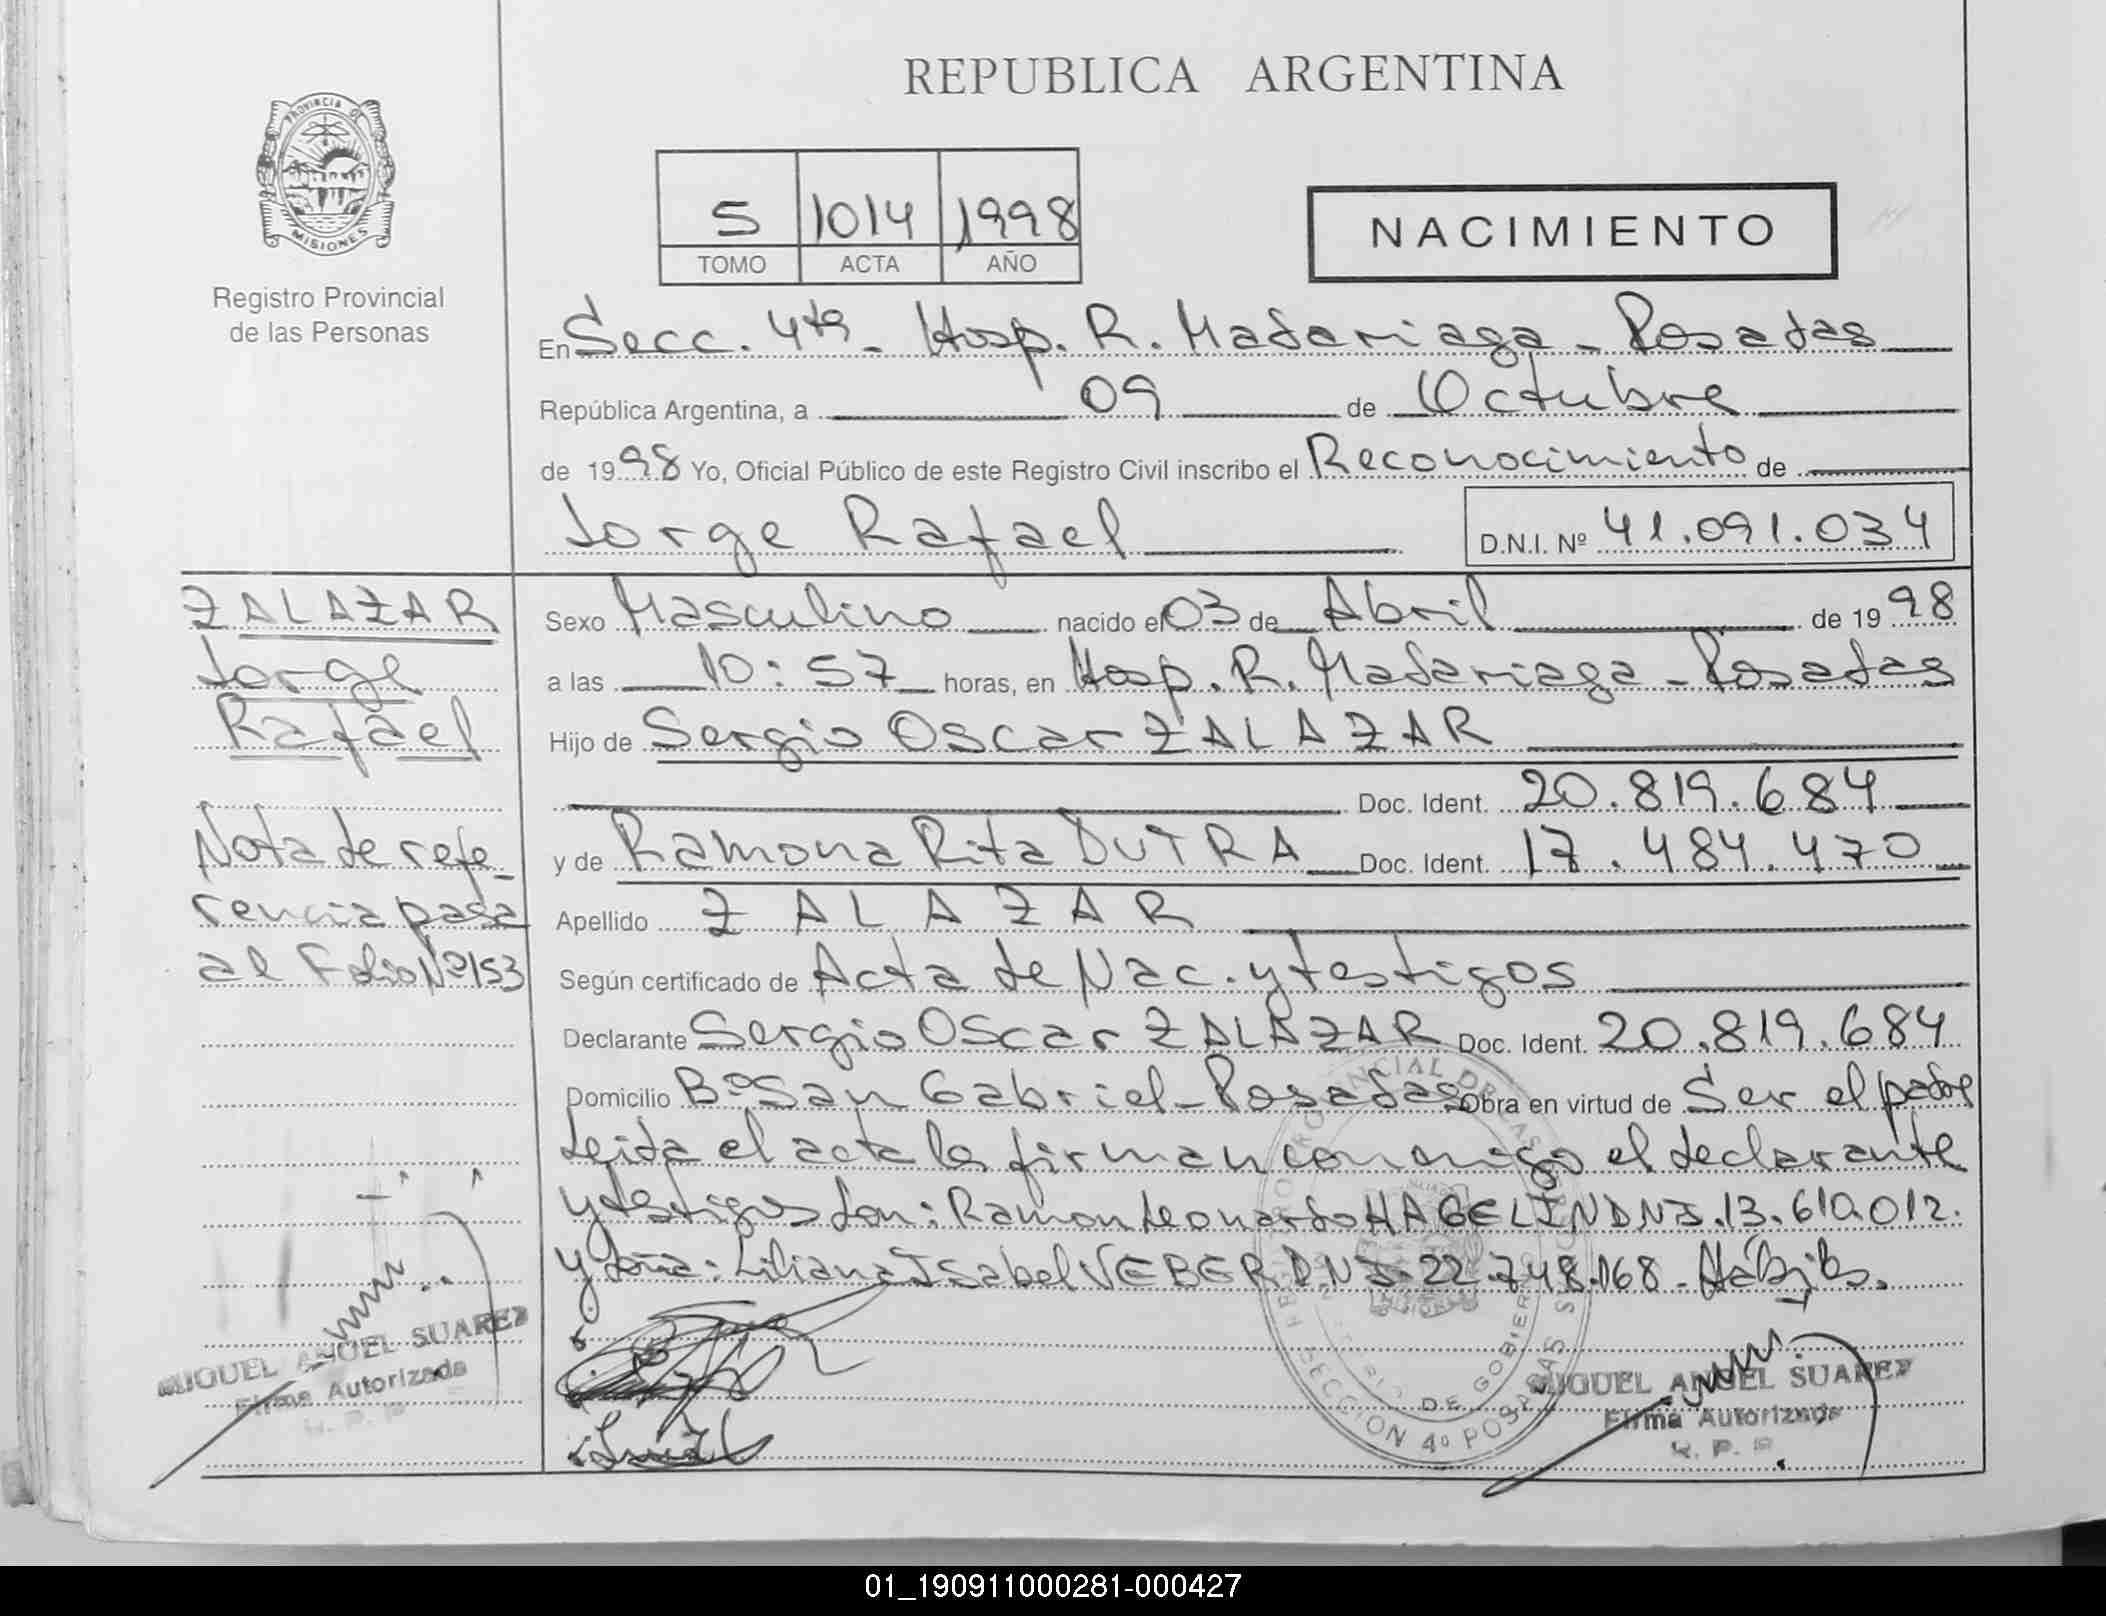 REPUBLICA ARGENTINA
PROVINCIA DE
MISIONES
Registro Provincial
de las Personas
5 1014 1998
TOMO ACTA AÑO
NACIMIENTO
En Secc. 4ta - Hosp. R. Madariaga - Posadas
República Argentina, a 09 de Octubre
de 1998 Yo, Oficial Público de este Registro Civil inscribo el Reconocimiento de
Jorge Rafael D.N.I. Nº 41.091.034
ZALAZAR
Jorge
Rafael
Nota de refe-
rencia pasa
al Folio Nº 153
Sexo Masculino nacido el 03 de Abril de 1998
a las 10:57 horas, en Hosp. R. Madariaga - Posadas
Hijo de Sergio Oscar ZALAZAR
Doc. Ident. 20.819.684
y de Ramona Rita DUTRA Doc. Ident. 17.484.470
Apellido ZALAZAR
Según certificado de Acta de Nac. y testigos
Declarante Sergio Oscar ZALAZAR Doc. Ident. 20.819.684
Domicilio Bº San Gabriel - Posadas Obra en virtud de Ser el padre
Leida el acta la firman conmigo el declarante
y testigos Don: Ramon Leonardo HAGELIN DNI. 13.610.012.
y Doña: Liliana Isabel VEBER DNI. 22.748.168 - Hábiles.
MIGUEL ANGEL SUAREZ
Firma Autorizada
R. P. P.
SECCION 4º POSADAS
DE GOBIERNO
MIGUEL ANGEL SUAREZ
Firma Autorizada
R. P. P.
01_190911000281-000427